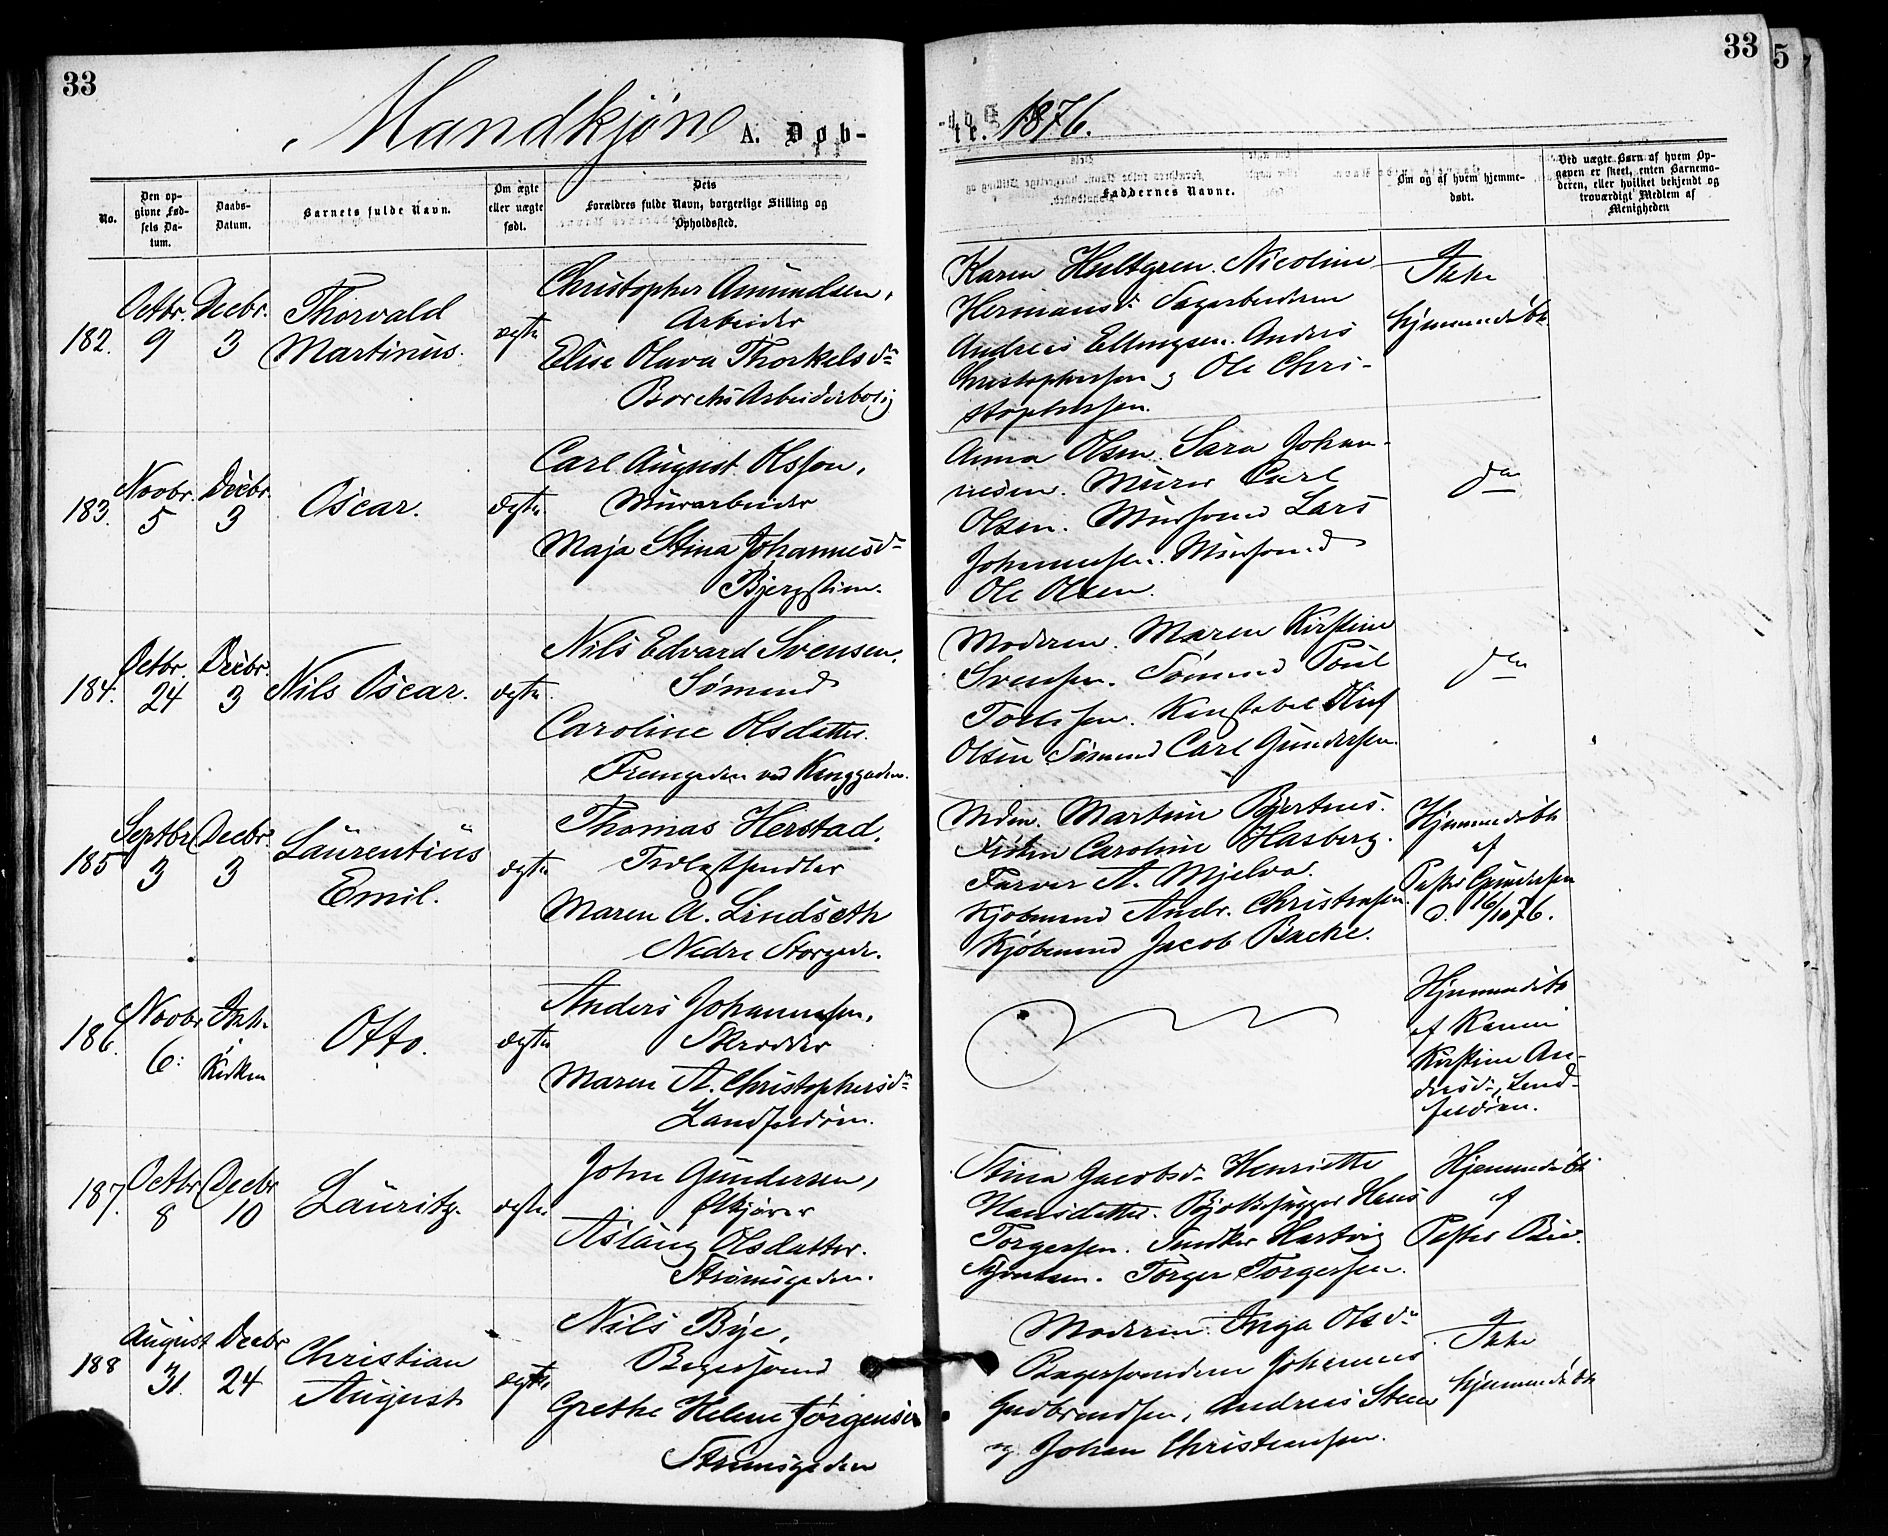 33
Mandkjøn A. Døb-
No.
Den opgivne Fødsels Datum.
Daabs-Datum.
Barnets fulde Navn.
Om ægte eller uægte født.
Dets Forældres fulde Navn, borgerlige Stilling og Opholdssted.
182.
Octbr. 9
Decbr. 3
Thorvald
Martinus.
ægte
Christopher Amundsen,
Arbeider
Elise Olava Thorkelsdr
Borchs Arbeiderbolig
183.
Novbr. 5
Decbr. 3
Oscar.
ægte
Carl August Olsson,
Murarbeider
Maja Stina Johannesdr
Bjergstien.
184.
Octbr. 24
Decbr. 3
Nils Oscar.
ægte
Nils Edvard Svensen,
Sømand
Caroline Olsdatter.
185
Septbr. 3
Decbr. 3
Laurentius
Emil.
ægte
Thomas Herstad,
Maren A. Lindseth
Nedre Storgade.
186.
Novbr. 6.
Ikke i Kirken
Otto.
ægte
Anders Johannesen,
Skrædder
Maren A. Christophersdr
Landfaldøen.
187.
Octbr 8
Decbr 10
Lauritz.
ægte
John Gundersen,
Ølkjører
Aslaug Olsdatter.
Strømsgaden.
188
August 31.
Decbr 24
Christian
August
ægte
Nils Bye,
Bagersvend
Grethe Helene Jørgensen
Strømsgaden
33
5
te. 1876.
Faddernes Navne.
Om og af hvem hjemmedøbt.
Ved uægte Børn af hvem Opgaven er skeet, enten Barnemoderen, eller hvilket bekjendt og troværdigt Medlem af Menigheden
Karen Hultgren. Nicoline
Hermansdr Sagarbeiderne
Andreas Ellingsen. Anders
Christophersen og Ole Chri-
stophersen.
Ikke
hjemmedøbt.
Anna Olsen. Sara Johan-
nesen. Murer Carl
Olsen. Mursvend Lars
Johannesen. Mursvend
Ole Olsen.
do
Moderen. Maren Kirstine
Svensen. Sømand Poul
Konstabel Oluf
Olsen Sømand Carl Gundersen.
do
Mden. Martine Bjertnes.
Frøken Caroline Hasberg.
Farver A. Mjelva.
Kjøbmand Andr. Christensen.
Kjøbmand Jacob Backe.
Hjemmedøbt
af
Pastor Gundersen
d. 16/10 76.
Hjemmedøbt
af Karen
Kirstine An-
dersdr, Land-
faldøen.
Stina Jacobsdr Henriette
Hansdatter. Hans
Torgersen. Snedker Hartvig
Torger Torgersen.
Hjemmedøbt
af
Pastor
Moderen. Inga Olsdr
Bagersvendene Johannes
Gudbrandsen, Andreas Steen
og Johan Christiansen.
Ikke
hjemmedøbt